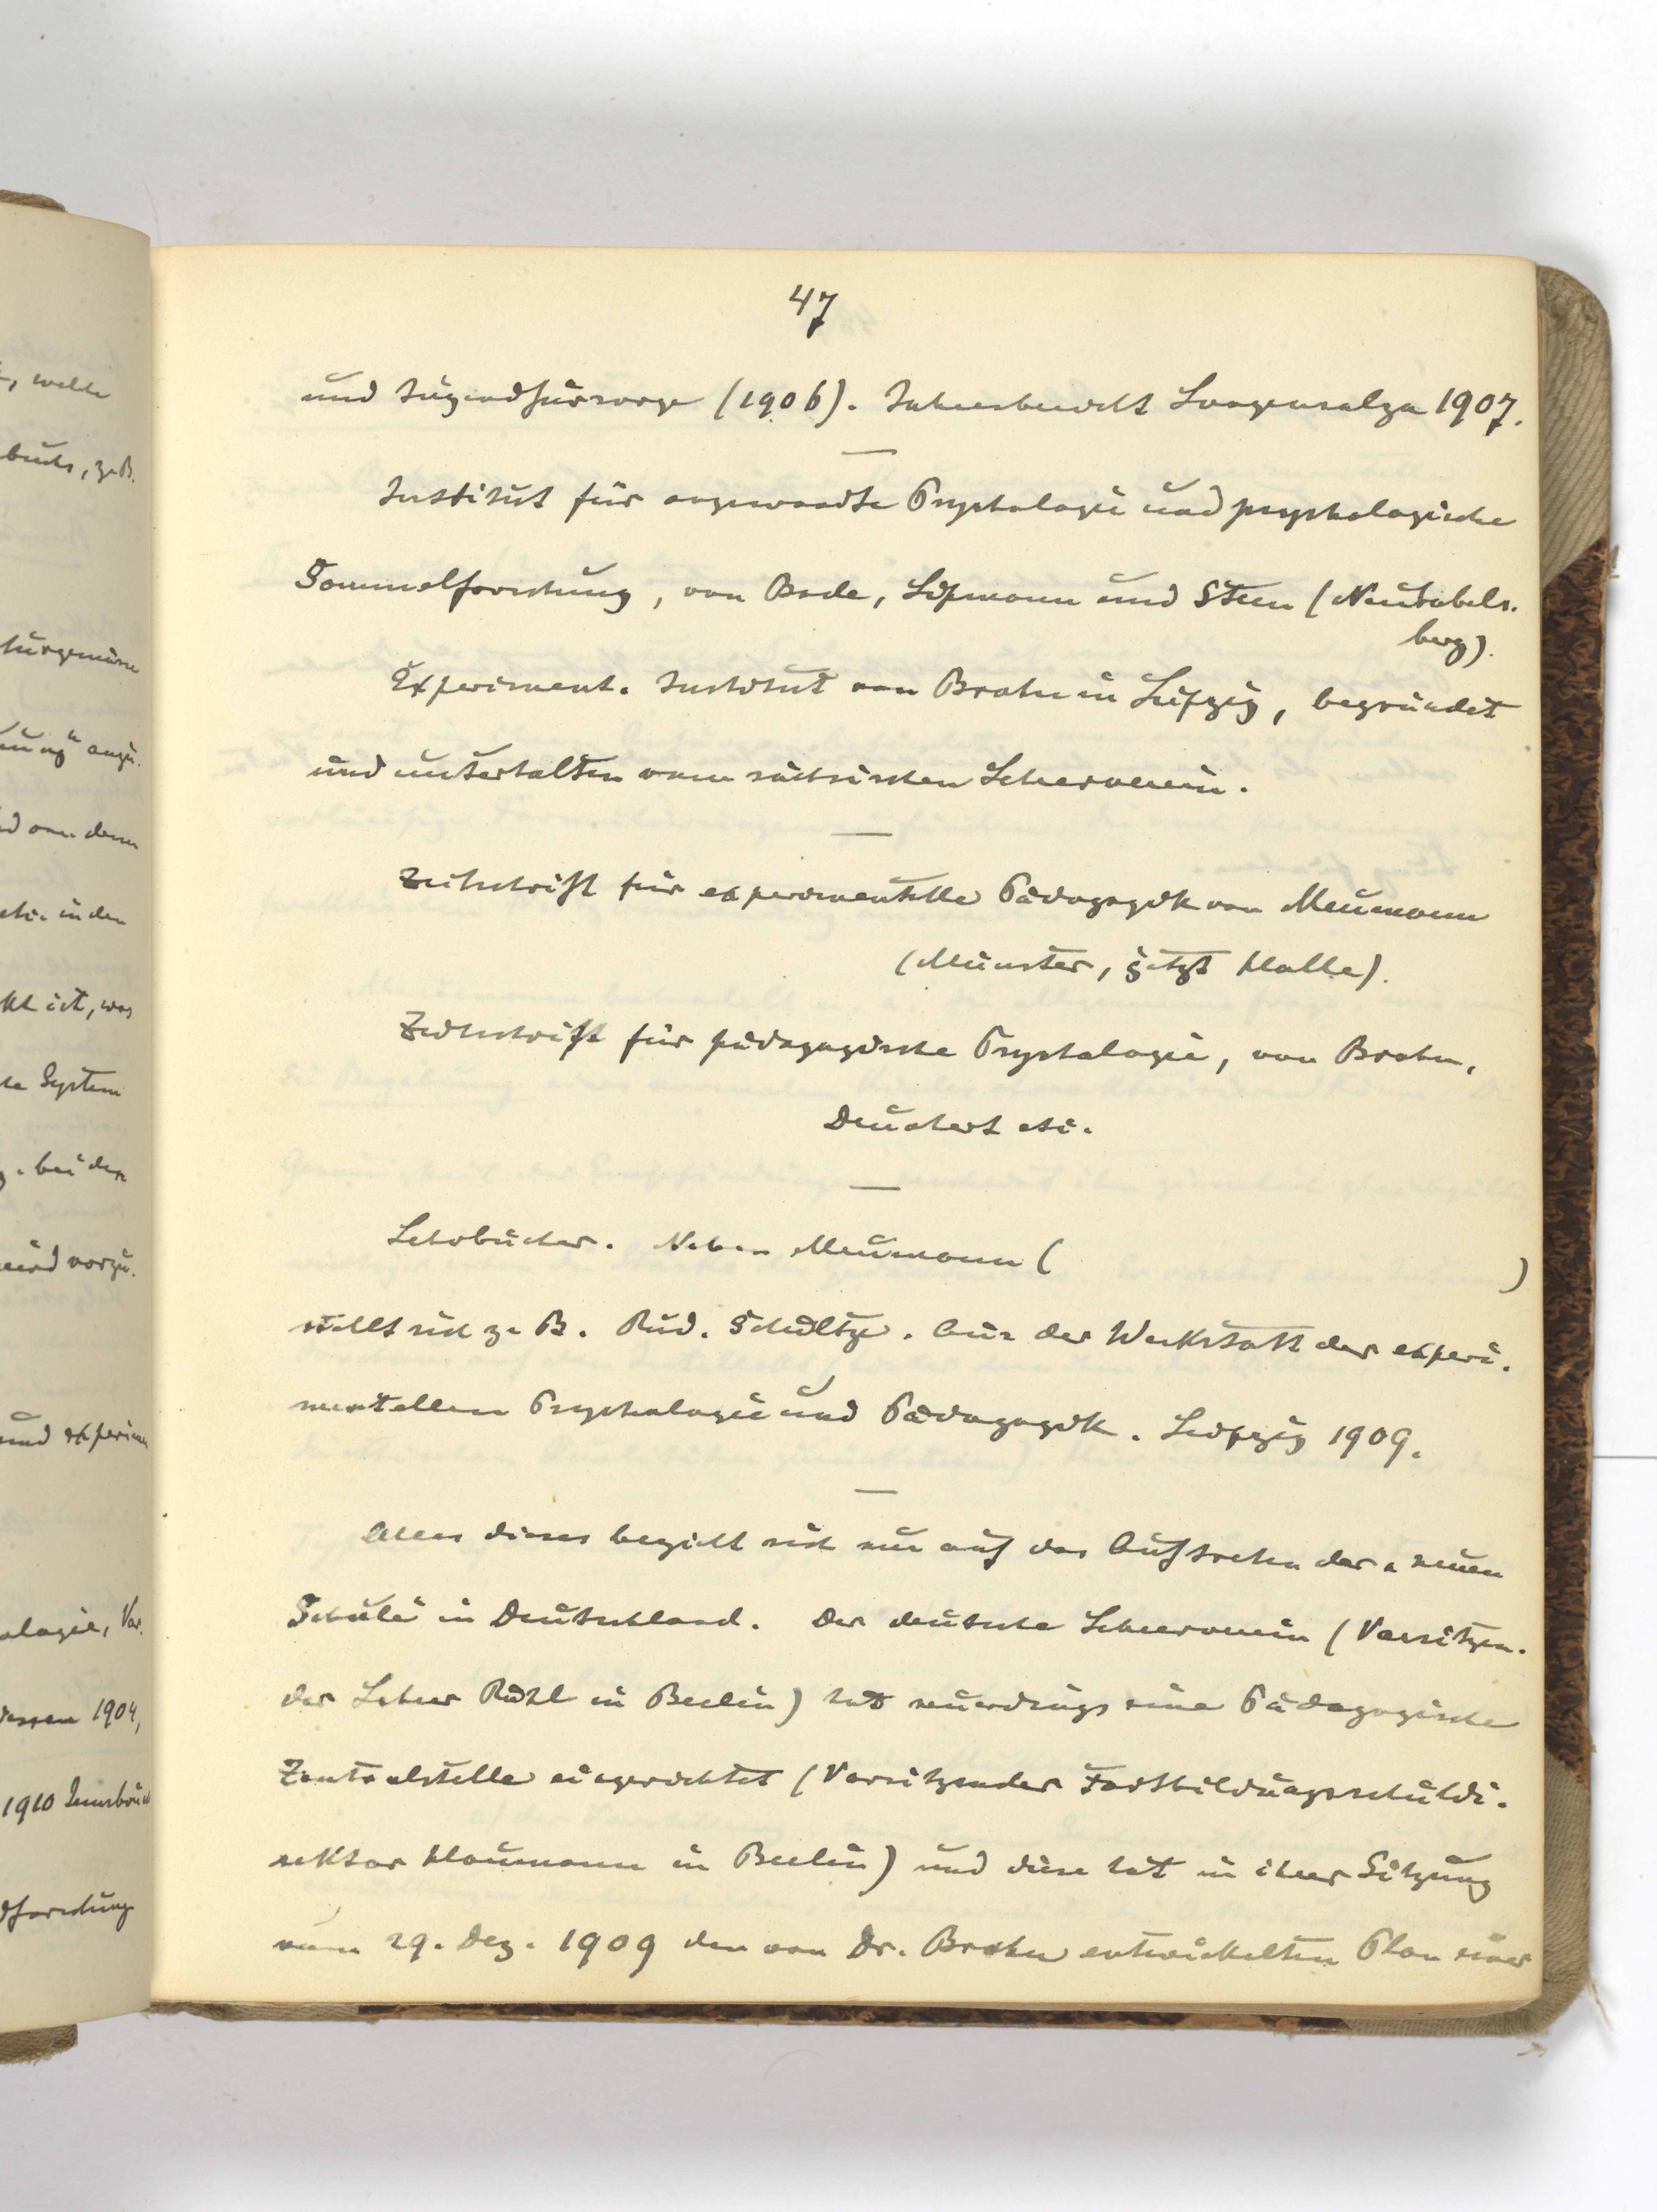 47
und Jugendfürsorge (1906). Jahresbericht Langensalza 1907.
Institut für angewandte Psychologie und psychologische
Sammelforschung, von Bode, Lipmann und Stern (Neubabels-
berg).
Experiment. Institut von Brahn in Leipzig, begründet
und unterhalten vom sächsischen Lehrerverein.
Zeitschrift für experimentelle Pädagogik von Meumann
(Münster, jetzt Halle).
Zeitschrift für pädagogische Psychologie, von Brahn,
Deuchert etc.
Lehrbücher. Neben Meumann ( )
stellt sich z. B. Rud. Schultze. Aus der Werkstatt der experi-
mentellen Psychologie und Pädagogik. Leipzig 1909.
Alles dieses bezieht sich nur auf das Auftreten der neuen
Schule in Deutschland. Der deutsche Lehrerverein (Vorsitzen-
der Lehrer Röhl in Berlin) hat neuerdings eine Pädagogische
Zentralstelle eingerichtet (Vorsitzender Fortbildungsschuldi-
rektor Haumann in Berlin) und diese hat in ihrer Sitzung
vom 29. Dez. 1909 den von Dr. Brahn entwickelten Plan einer
, welche
buchs, z. B.
und von dem
etc. in den
ist, was
System
bei der
wird vorzu-
und experimen
ologie, Vor-
1904,
1910 Innsbruck
dforschung